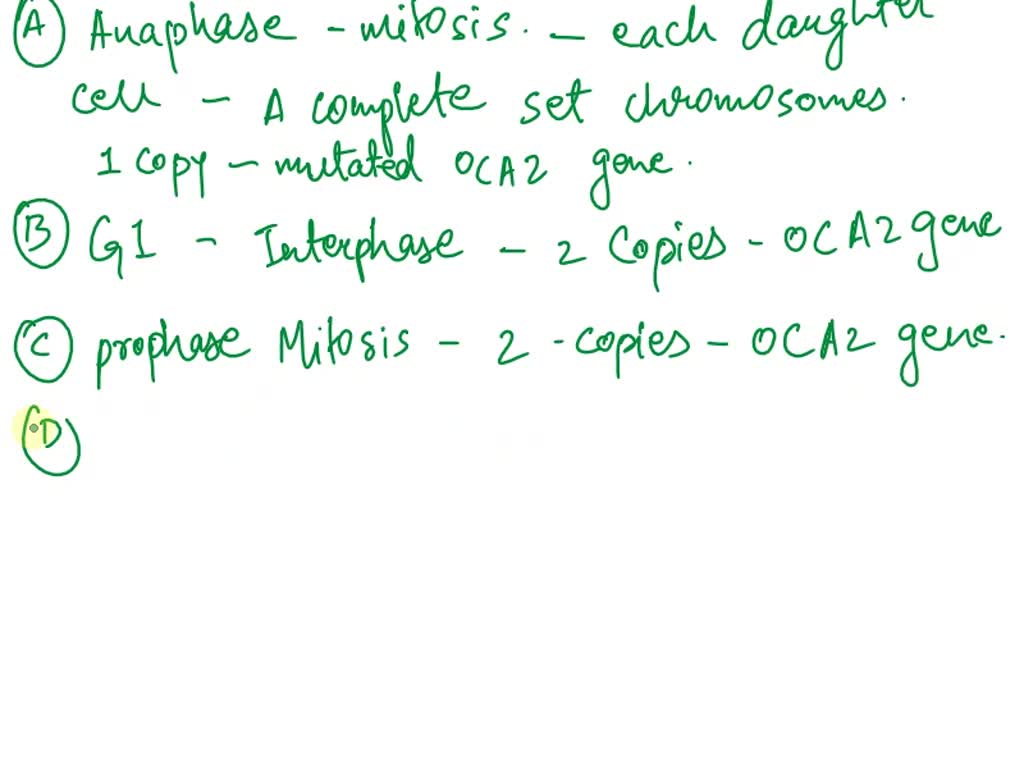 (A) Anaphase - mitosis. - each daughter
cell - A complete set chromosomes.
1 copy - mutated OCA2 gene.
(B) G1 - Interphase - 2 Copies - OCA2 gene
(C) prophase Mitosis - 2 - copies - OCA2 gene.
(D)